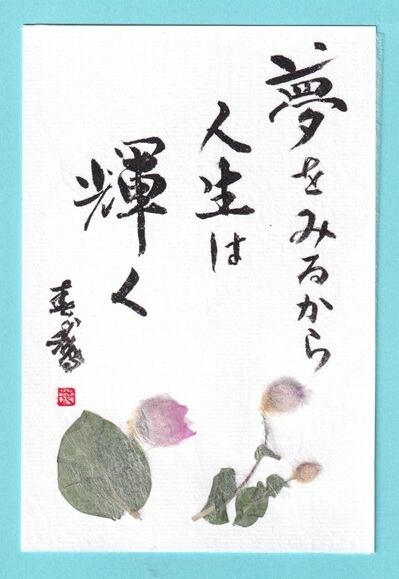 夢をみるから
人生は
輝く